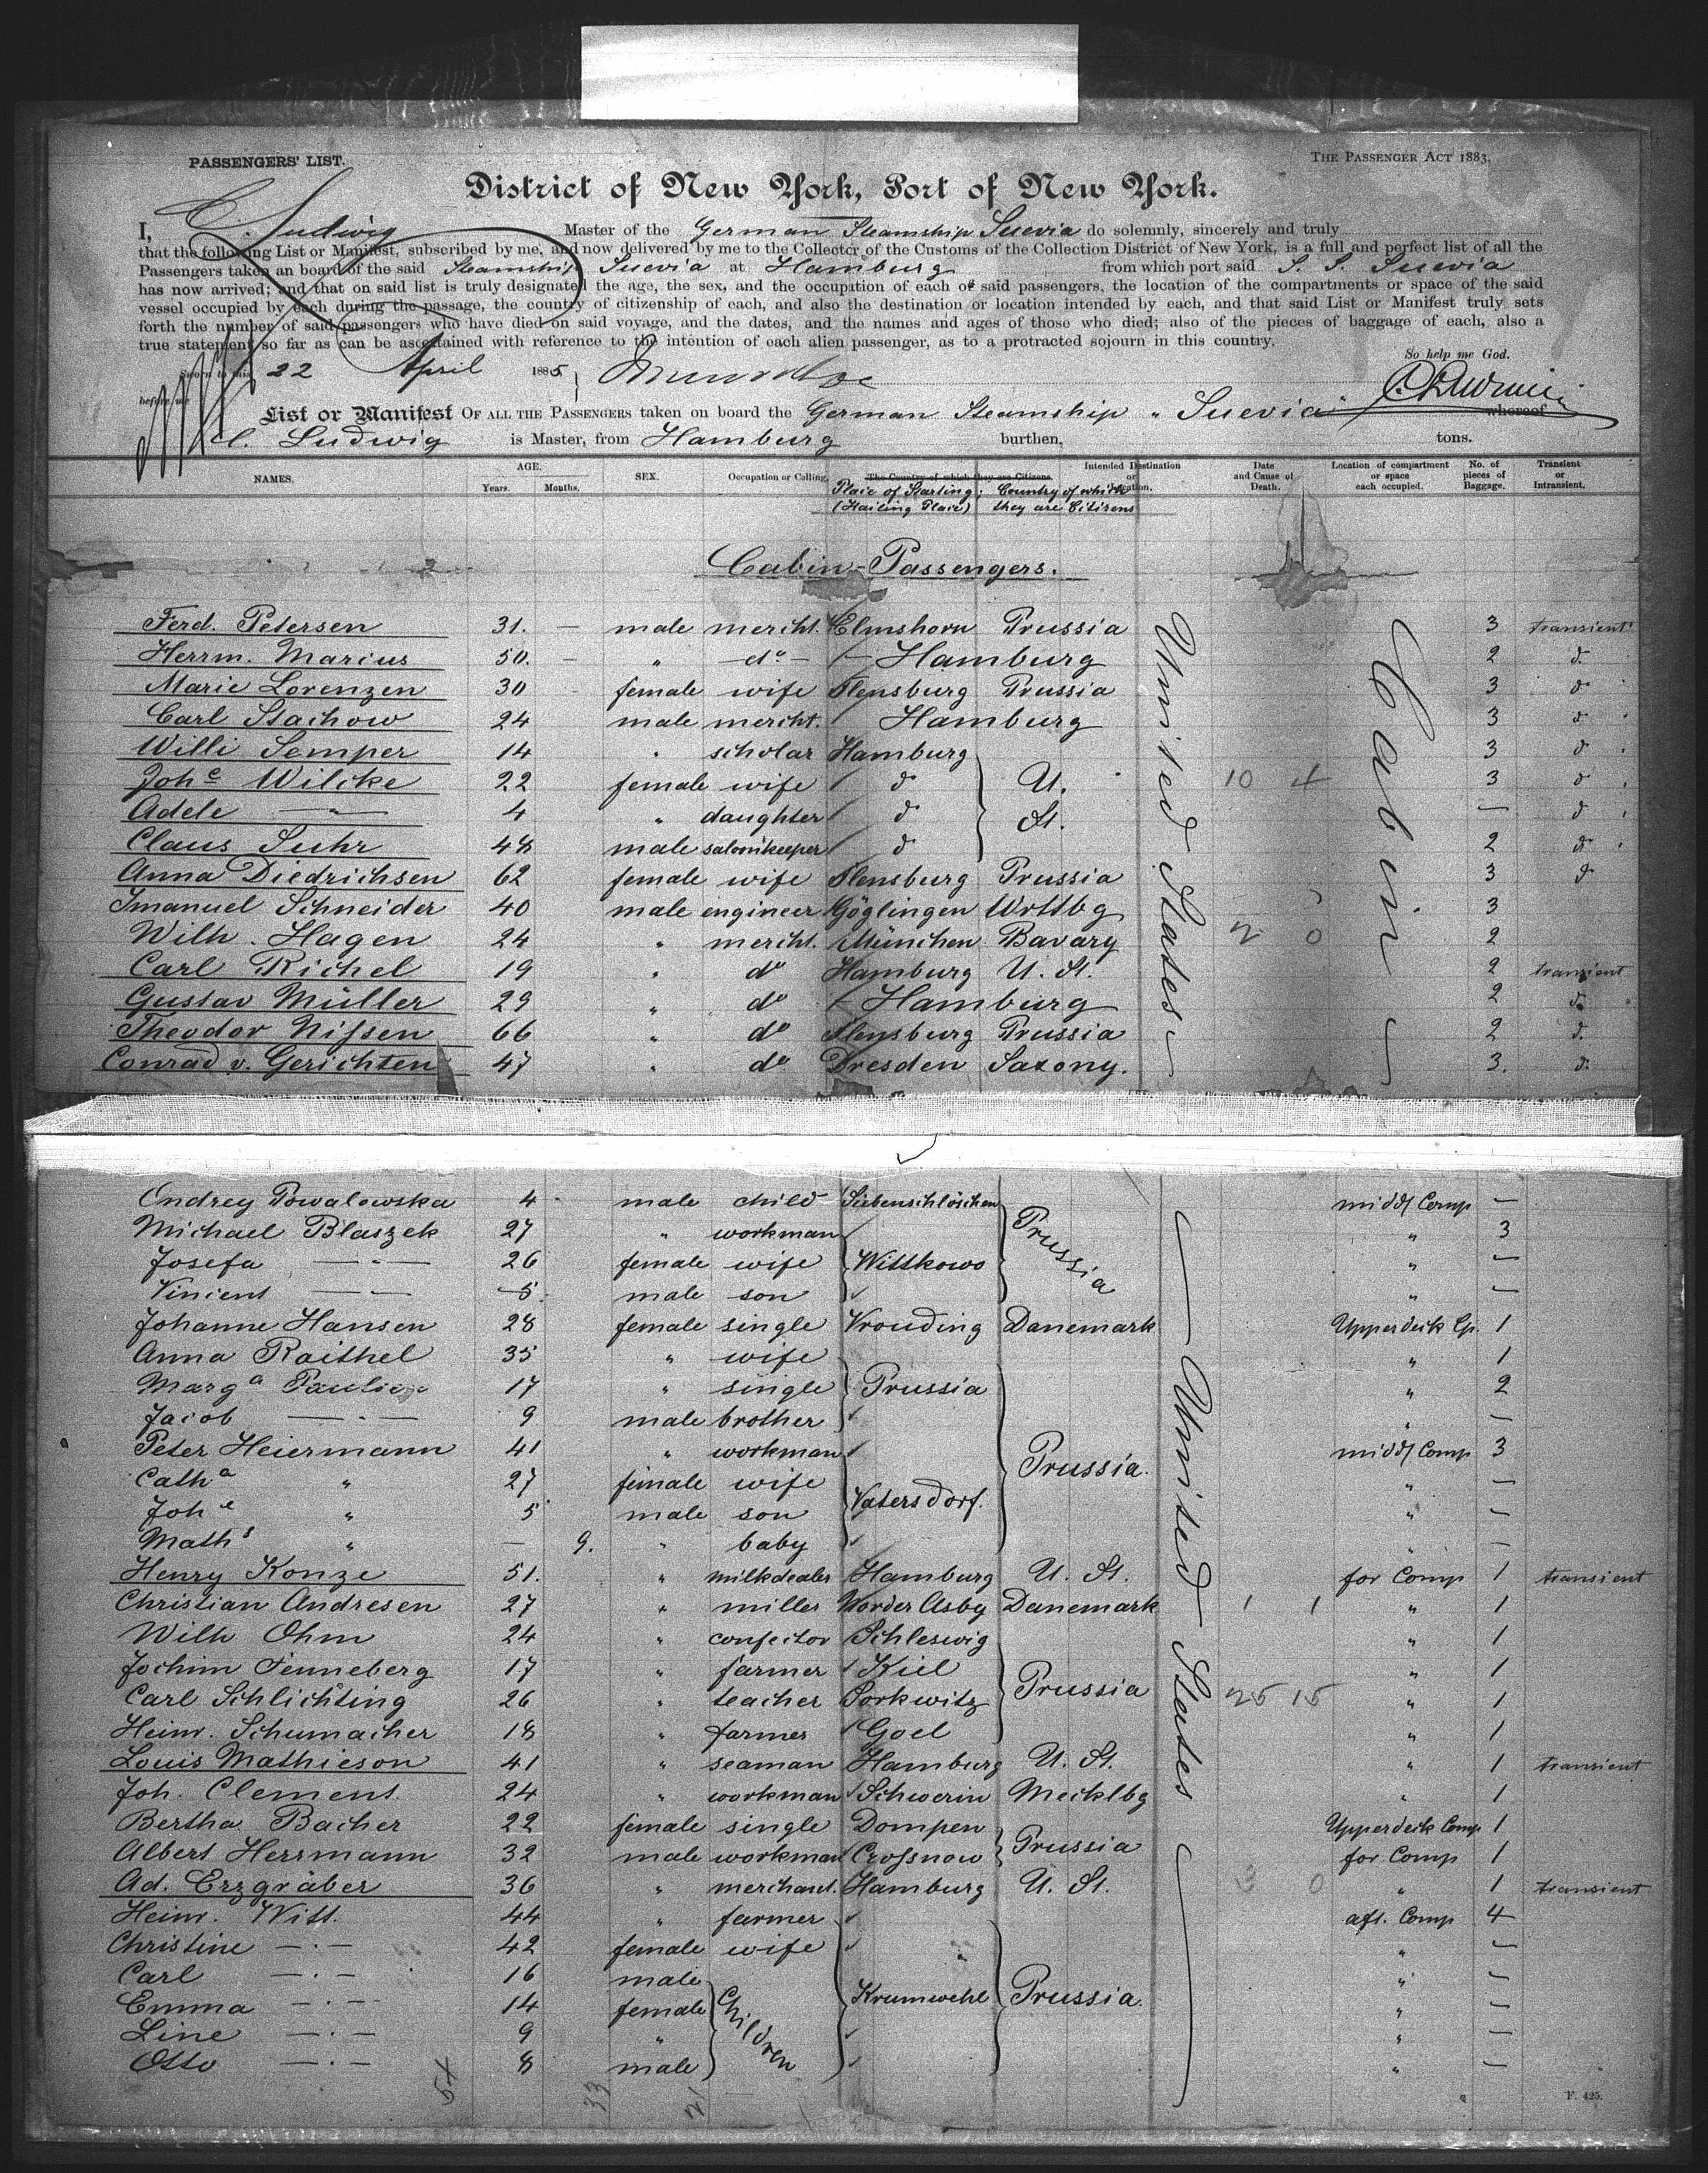 PASSENGERS' LIST. THE PASSENGER ACT 1883.
District of New York, Port of New York.
I, C. Ludwig Master of the German Steamship Suevia do solemnly, sincerely and truly
that the following List or Manifest, subscribed by me, and now delivered by me to the Collector of the Customs of the Collection District of New York, is a full and perfect list of all the
Passengers taken an board of the said Steamship Suevia at Hamburg from which port said S. S. Suevia
has now arrived; and that on said list is truly designated the age, the sex, and the occupation of each of said passengers, the location of the compartments or space of the said
vessel occupied by each during the passage, the country of citizenship of each, and also the destination or location intended by each, and that said List or Manifest truly sets
forth the number of said passengers who have died on said voyage, and the dates, and the names and ages of those who died; also of the pieces of baggage of each, also a
true statement so far as can be ascertained with reference to the intention of each alien passenger, as to a protracted sojourn in this country.
So help me God.
Sworn to this 22 April 1885
before me
List or Manifest OF ALL THE PASSENGERS taken on board the German Steamship "Suevia" whereof
C. Ludwig is Master, from Hamburg burthen, tons.
NAMES. AGE. Years. Months. SEX. Occupation or Calling. The Country of which they are Citizens. Intended Destination or Location. Date and Cause of Death. Location of compartment or space each occupied. No. of pieces of Baggage. Transient or Intransient.
Place of Starting (Hailing Place) Country of which they are Citizens
Cabin-Passengers.
Ferd. Petersen 31. — male mercht. Elmshorn Prussia United States Cabin 3 transient
Herrm. Marius 50. — " do — Hamburg 2 do
Marie Lorenzen 30 female wife Flensburg Prussia 3 do
Carl Stachow 24 male mercht. Hamburg 3 do
Willi Semper 14 " scholar Hamburg 3 do
Joh e Wilcke 22 female wife do U. 10 4 3 do
Adele — " — 4 " daughter do St. — do
Claus Suhr 48 male saloonkeeper do 2 do
Anna Diedrichsen 62 female wife Flensburg Prussia 3 do
Imanuel Schneider 40 male engineer Göglingen Wrttbg 3
Wilh. Hagen 24 " mercht. München Bavary 2 0 2
Carl Richel 19 " do Hamburg U. St. 2 transient
Gustav Müller 29 " do Hamburg 2 do
Theodor Nissen 66 " do Flensburg Prussia 2 do
Conrad v. Gerichten 47 " do Dresden Saxony. 3. do
Ondrey Powalowska 4 male child Siebenschlöschen Prussia United States midd/ Comp —
Michael Blaszek 27 " workman " 3
Josefa — " — 26 female wife Wittkowo " —
Vincent — — 5 male son " —
Johanne Hansen 28 female single Vrouding Danemark Upperdeck Cp. 1
Anna Raithel 35 " wife " 1
Marg a 17 " single Prussia " 2
Jacob — " — 9 male brother " —
Peter Heiermann 41 " workman Prussia. midd/ Comp 3
Cath a " 27 female wife " —
Joh e " 5 male son Vatersdorf. " —
Math s " — 9. " baby " —
Henry Konze 51. " milkdealer Hamburg U. St. for Comp 1 transient
Christian Andresen 27 " miller Norder Asby Danemark 1 1 " 1
Wilh Ohm 24 " confector Schleswig " 1
Jochim Finneberg 17 " farmer Kiel Prussia " 1
Carl Schlichting 26 " teacher Sorkwitz 25 15 " 1
Heinr. Schumacher 18 " farmer Goel " 1
Louis Mathieson 41 " seaman Hamburg U. St. " 1 transient
Joh. Clement 24 " workman Schwerin Mecklbg " 1
Bertha Bacher 22 female single Dompen Prussia Upperdeck Comp 1
Albert Herrmann 32 male workman Crossnow for Comp 1
Ad. Erzgräber 36 " merchant. Hamburg U. St. 3 0 " 1 transient
Heinr. Witt. 44 " farmer aft. Comp 4
Christine — " — 42 female wife " " —
Carl — " — 16 male Children " —
Emma — " — 14 female Krumwehl Prussia. " —
Line — " — 9 " " —
Otto — " — 8 male " —
54 33 21
F. 425.